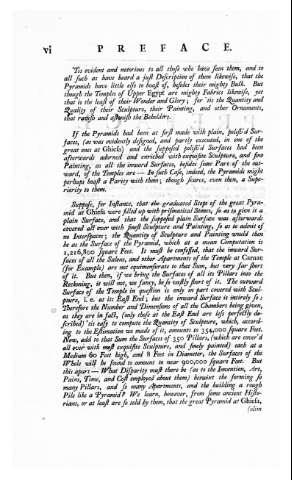 vi PREFACE.
'Tis evident and notorious to all those who have seen them, and to
all such as have heard a just Description of them likewise, that the
Pyramids have little else to boast of, besides their mighty Bulk. But
though the Temples of Upper Egypt are mighty Fabrics likewise, yet
that is the least of their Wonder and Glory; for 'tis the Quantity and
Quality of their Sculpture, their Painting, and other Ornaments,
that ravish and astonish the Beholder.
If the Pyramids had been at first made with plain, polish'd Sur-
faces, (as was evidently designed, and partly executed, in one of the
great ones at Ghieza) and the supposed polish'd Surfaces had been
afterwards adorned and enriched with exquisite Sculpture, and fine
Painting, as all the inward Surfaces, besides some Part of the out-
ward, of the Temples are — In such Case, indeed, the Pyramids might
perhaps boast a Parity with them; though scarce, even then, a Supe-
riority to them.
Suppose, for Instance, that the graduated Steps of the great Pyra-
mid at Ghieza were filled up with prismatical Stones, so as to give it a
plain Surface, and that the supposed plain Surface was afterwards
covered all over with finest Sculpture and Painting, so as to admit of
no Interspace; the Quantity of Sculpture and Painting would then
be as the Surface of the Pyramid, which at a mean Computation is
1,216,800 square Feet. It must be confessed, that the inward Sur-
faces of all the Salons, and other Apartments of the Temple at Carnac
(for Example) are not equimensurate to that Sum, but very far short
of it. But then, if we bring the Surfaces of all its Pillars into the
Reckoning, it will not, we fancy, be so vastly short of it. The outward
Surface of the Temple in question is only in part covered with Scul-
pture, i.e. at its East End; but the inward Surface is entirely so:
Therefore the Number and Dimensions of all the Chambers being given,
as they are in fact, (only those at the East End are less perfectly de-
scribed) 'tis easy to compute the Quantity of Sculpture, which, accord-
ing to the Estimation we made of it, amounts to 354,000 square Feet.
Now, add to that Sum the Surfaces of 350 Pillars, (which are cover'd
all over with most exquisite Sculpture, and finely painted) each at a
Medium 60 Feet high, and 8 Feet in Diameter, the Surfaces of the
Whole will be found to amount to near 900,000 square Feet. But
this apart — What Disparity must there be (as to the Invention, Art,
Pains, Time, and Cost employed about them) betwixt the forming so
many Pillars, and so many Apartments, and the building a rough
Pile like a Pyramid? We learn, however, from some ancient Histo-
rians, or at least are so told by them, that the great Pyramid at Ghieza,